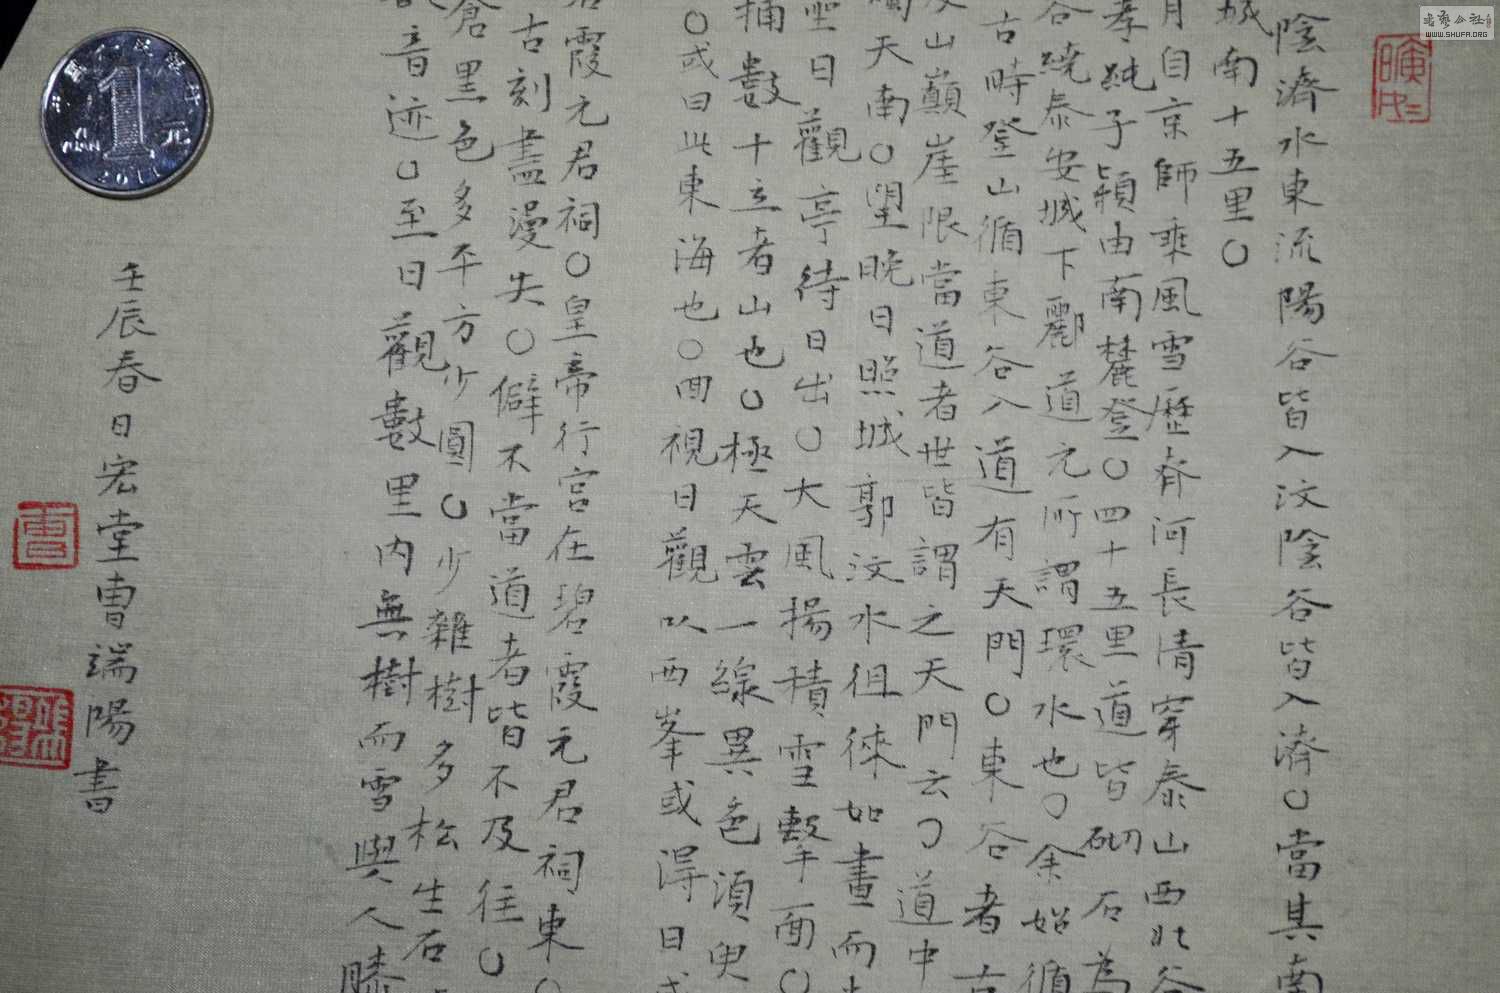 陰濟水東流陽谷皆入汶陰谷皆入濟○當其南
城南十五里○
月自京師乘風雪歷齊河長清穿泰山西北谷
孝純子潁由南麓登○四十五里道皆砌石為
谷繞泰安城下酈道元所謂環水也○余始循
古時登山循東谷入道有天門○東谷者古
及山巔崖限當道者世皆謂之天門云○道中
天南○望晚日照城郭汶水徂徠如畫而
坐日觀亭待日出○大風揚積雪擊面○
數十立者山也○極天雲一線異色須臾
○或曰此東海也○回視日觀以西峯或得日或
霞元君祠○皇帝行宮在碧霞元君祠東○
古刻盡漫失○僻不當道者皆不及往○
蒼黑色多平方少圓○少雜樹多松生石
音迹○至日觀數里內無樹而雪與人膝
壬辰春日宏堂曹端陽書
1
YI YUAN
元
2011
WWW.SHUFA.ORG